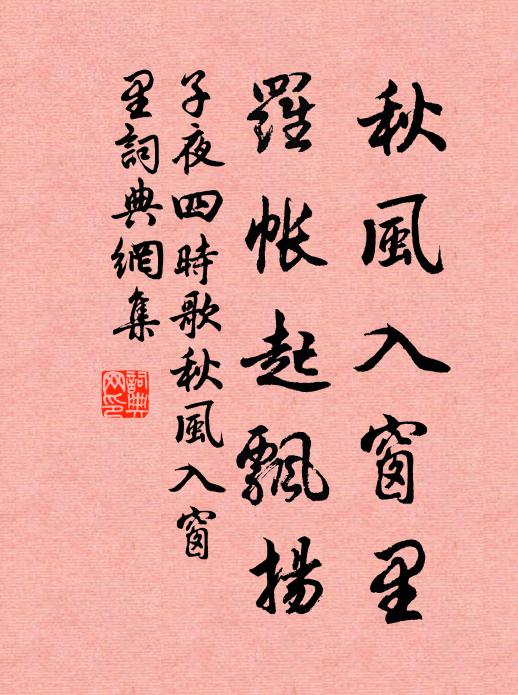 秋風入窗里
羅帳起飄揚
子夜四時歌秋風入窗
里詞典網集
詞典網印